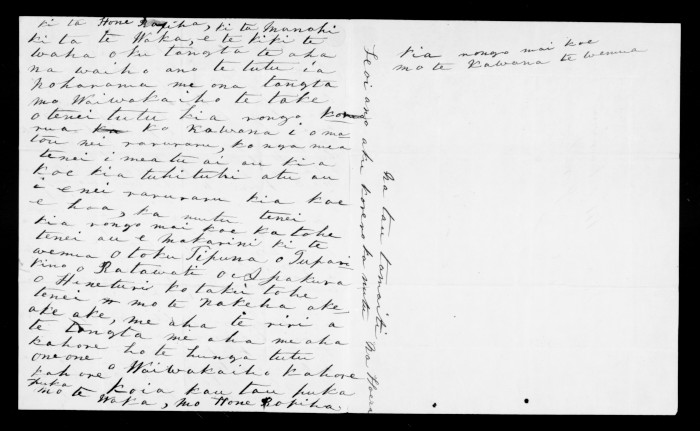 ki ta Hone Ropiha, ki ta Manahi
ki ta te Waka, e te kiki te
waha o ku tangta te aha
na waiho ano te tutu ia
poharama me ona tangta
mo Waiwakaiho te take
o tenei tutu kia rongo
rua ko Kawana i o ma
tou nei raruraru, ko nga mea
tenei i mea tu ai au kia
koe kia tuhituhi atu au
i enei raruraru kia koe
e hoa, ka mutu tenei
kia rongo mai koe ka tohe
tenei au e Makarini ki te
wenua o toku Tipuna o Tupari
kino o Ratawati o Ipakura
o Hineturi ko taku tohe
tenei mo te Pakeha ake
ake ake, me aha te riri a
te tangta me aha me aha
kahore ho te hunga tutu
oneone o Waiwakaiho kahore
kahore koia kau tau puka
puka mo te Waka, mo Hone Ropiha.
heoi ano aku korero ka mutu Na Hona
Na tau tamaiti
kia rongo mai koe
mo te Kawana te wenua